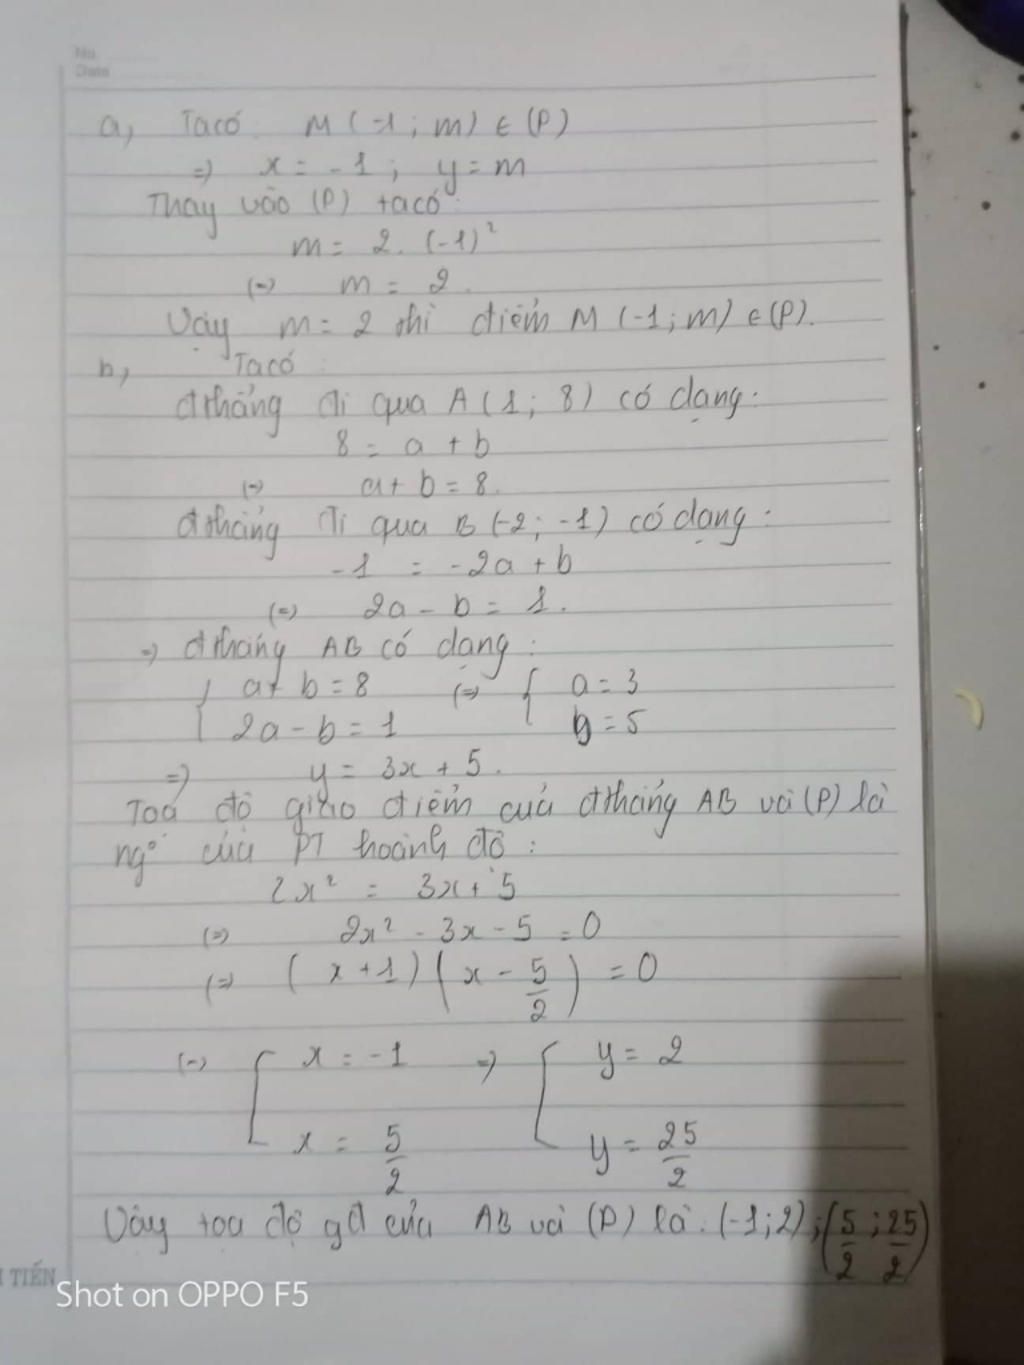 No.
Date
a, Ta có: M (-1; m) ∈ (P)
=> x = -1 ; y = m
Thay vào (P) ta có:
m = 2. (-1)²
(=) m = 2.
Vậy m = 2 thì điểm M (-1; m) ∈ (P).
b, Ta có:
đthẳng đi qua A (1; 8) có dạng:
8 = a + b
(=) a + b = 8.
đthẳng đi qua B (-2; -1) có dạng:
-1 = -2a + b
(=) 2a - b = 1.
=> đthẳng AB có dạng:
{ a + b = 8 (=) { a = 3
2a - b = 1 b = 5
=> y = 3x + 5.
Toạ độ giao điểm của đthẳng AB và (P) là
ng° của PT hoành độ:
2x² = 3x + 5
(=) 2x² - 3x - 5 = 0
(=) (x + 1)(x - 5/2) = 0
(=) [ x = -1 => [ y = 2
x = 5/2 y = 25/2
Vậy toạ độ gđ của AB và (P) là: (-1; 2); (5/2; 25/2)
TIẾN
Shot on OPPO F5